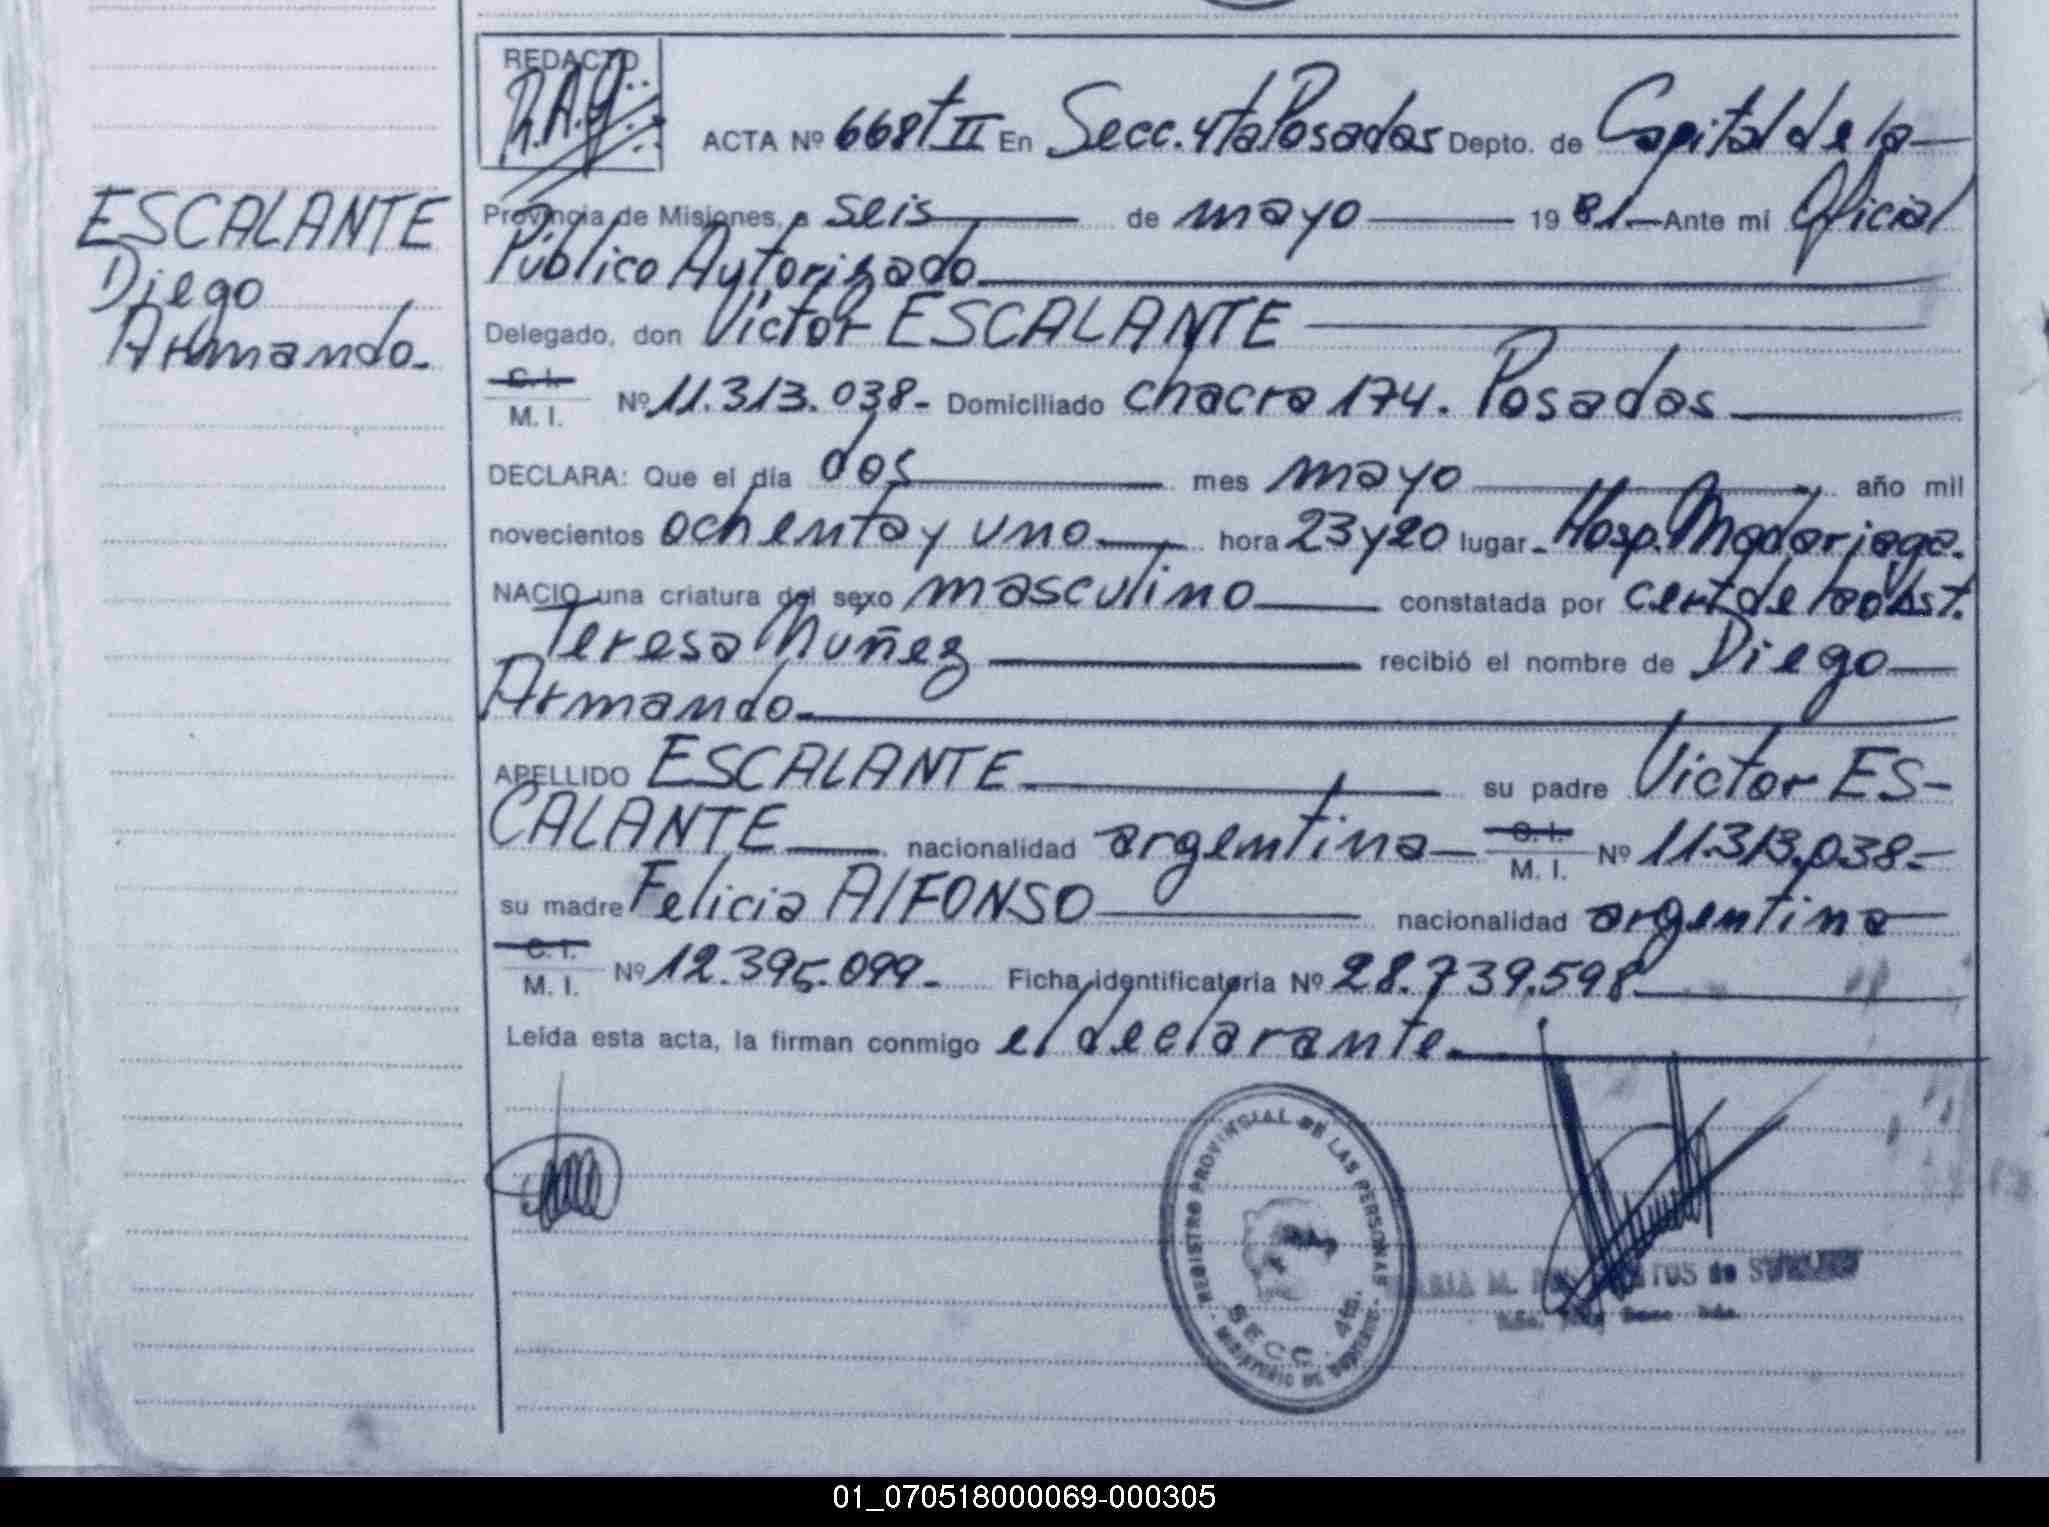 REDACTO
R.A.G.
ACTA Nº 668 t II En Secc. 4ta Posadas Depto. de Capital de la
Provincia de Misiones, a seis de mayo 1981. Ante mi Oficial
Público Autorizado
Delegado, don Victor ESCALANTE
C. I.
M. I. Nº 11.313.038- Domiciliado chacra 174. Posadas
DECLARA: Que el día dos mes mayo año mil
novecientos ochenta y uno hora 23 y 20 lugar Hosp. Madariaga.
NACIO una criatura del sexo masculino constatada por cert de la obst.
Teresa Nuñez recibió el nombre de Diego
Armando.
APELLIDO ESCALANTE su padre Victor ES-
CALANTE nacionalidad argentina C. I.
M. I. Nº 11.313.038-
su madre Felicia AlFONSO nacionalidad argentina
C. I.
M. I. Nº 12.395.099- Ficha identificatoria Nº 28.739.598
Leída esta acta, la firman conmigo el declarante.
ESCALANTE
Diego
Armando.
REGISTRO PROVINCIAL DE LAS PERSONAS
SECC. 4ta.
MINISTERIO DE GOBIERNO
MARIA M.
de
01_070518000069-000305